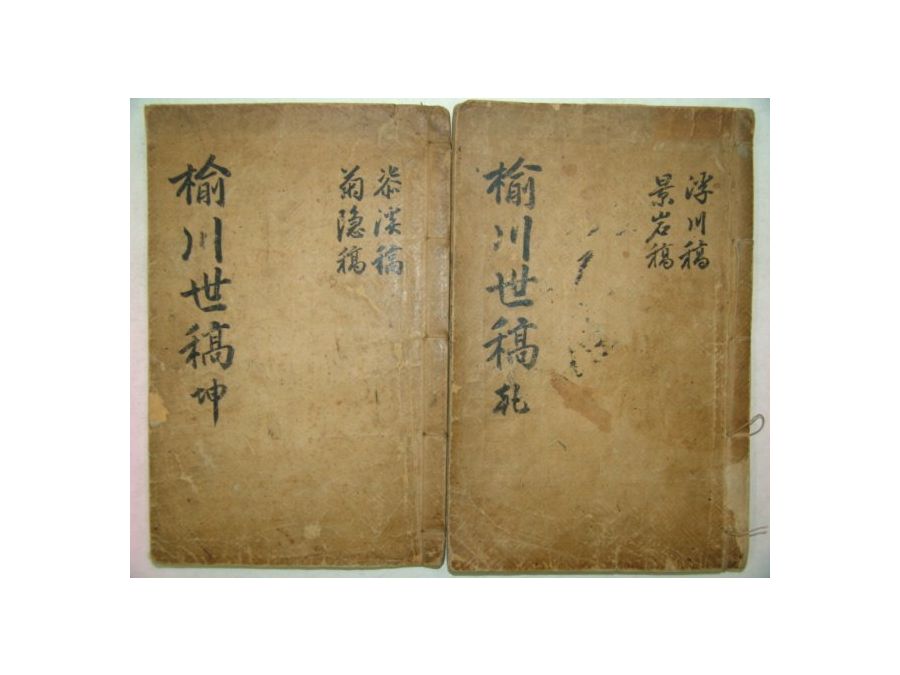 浮川稿
景岩稿
榆川世稿 乾
淡稿
菊隐稿
榆川世稿 坤